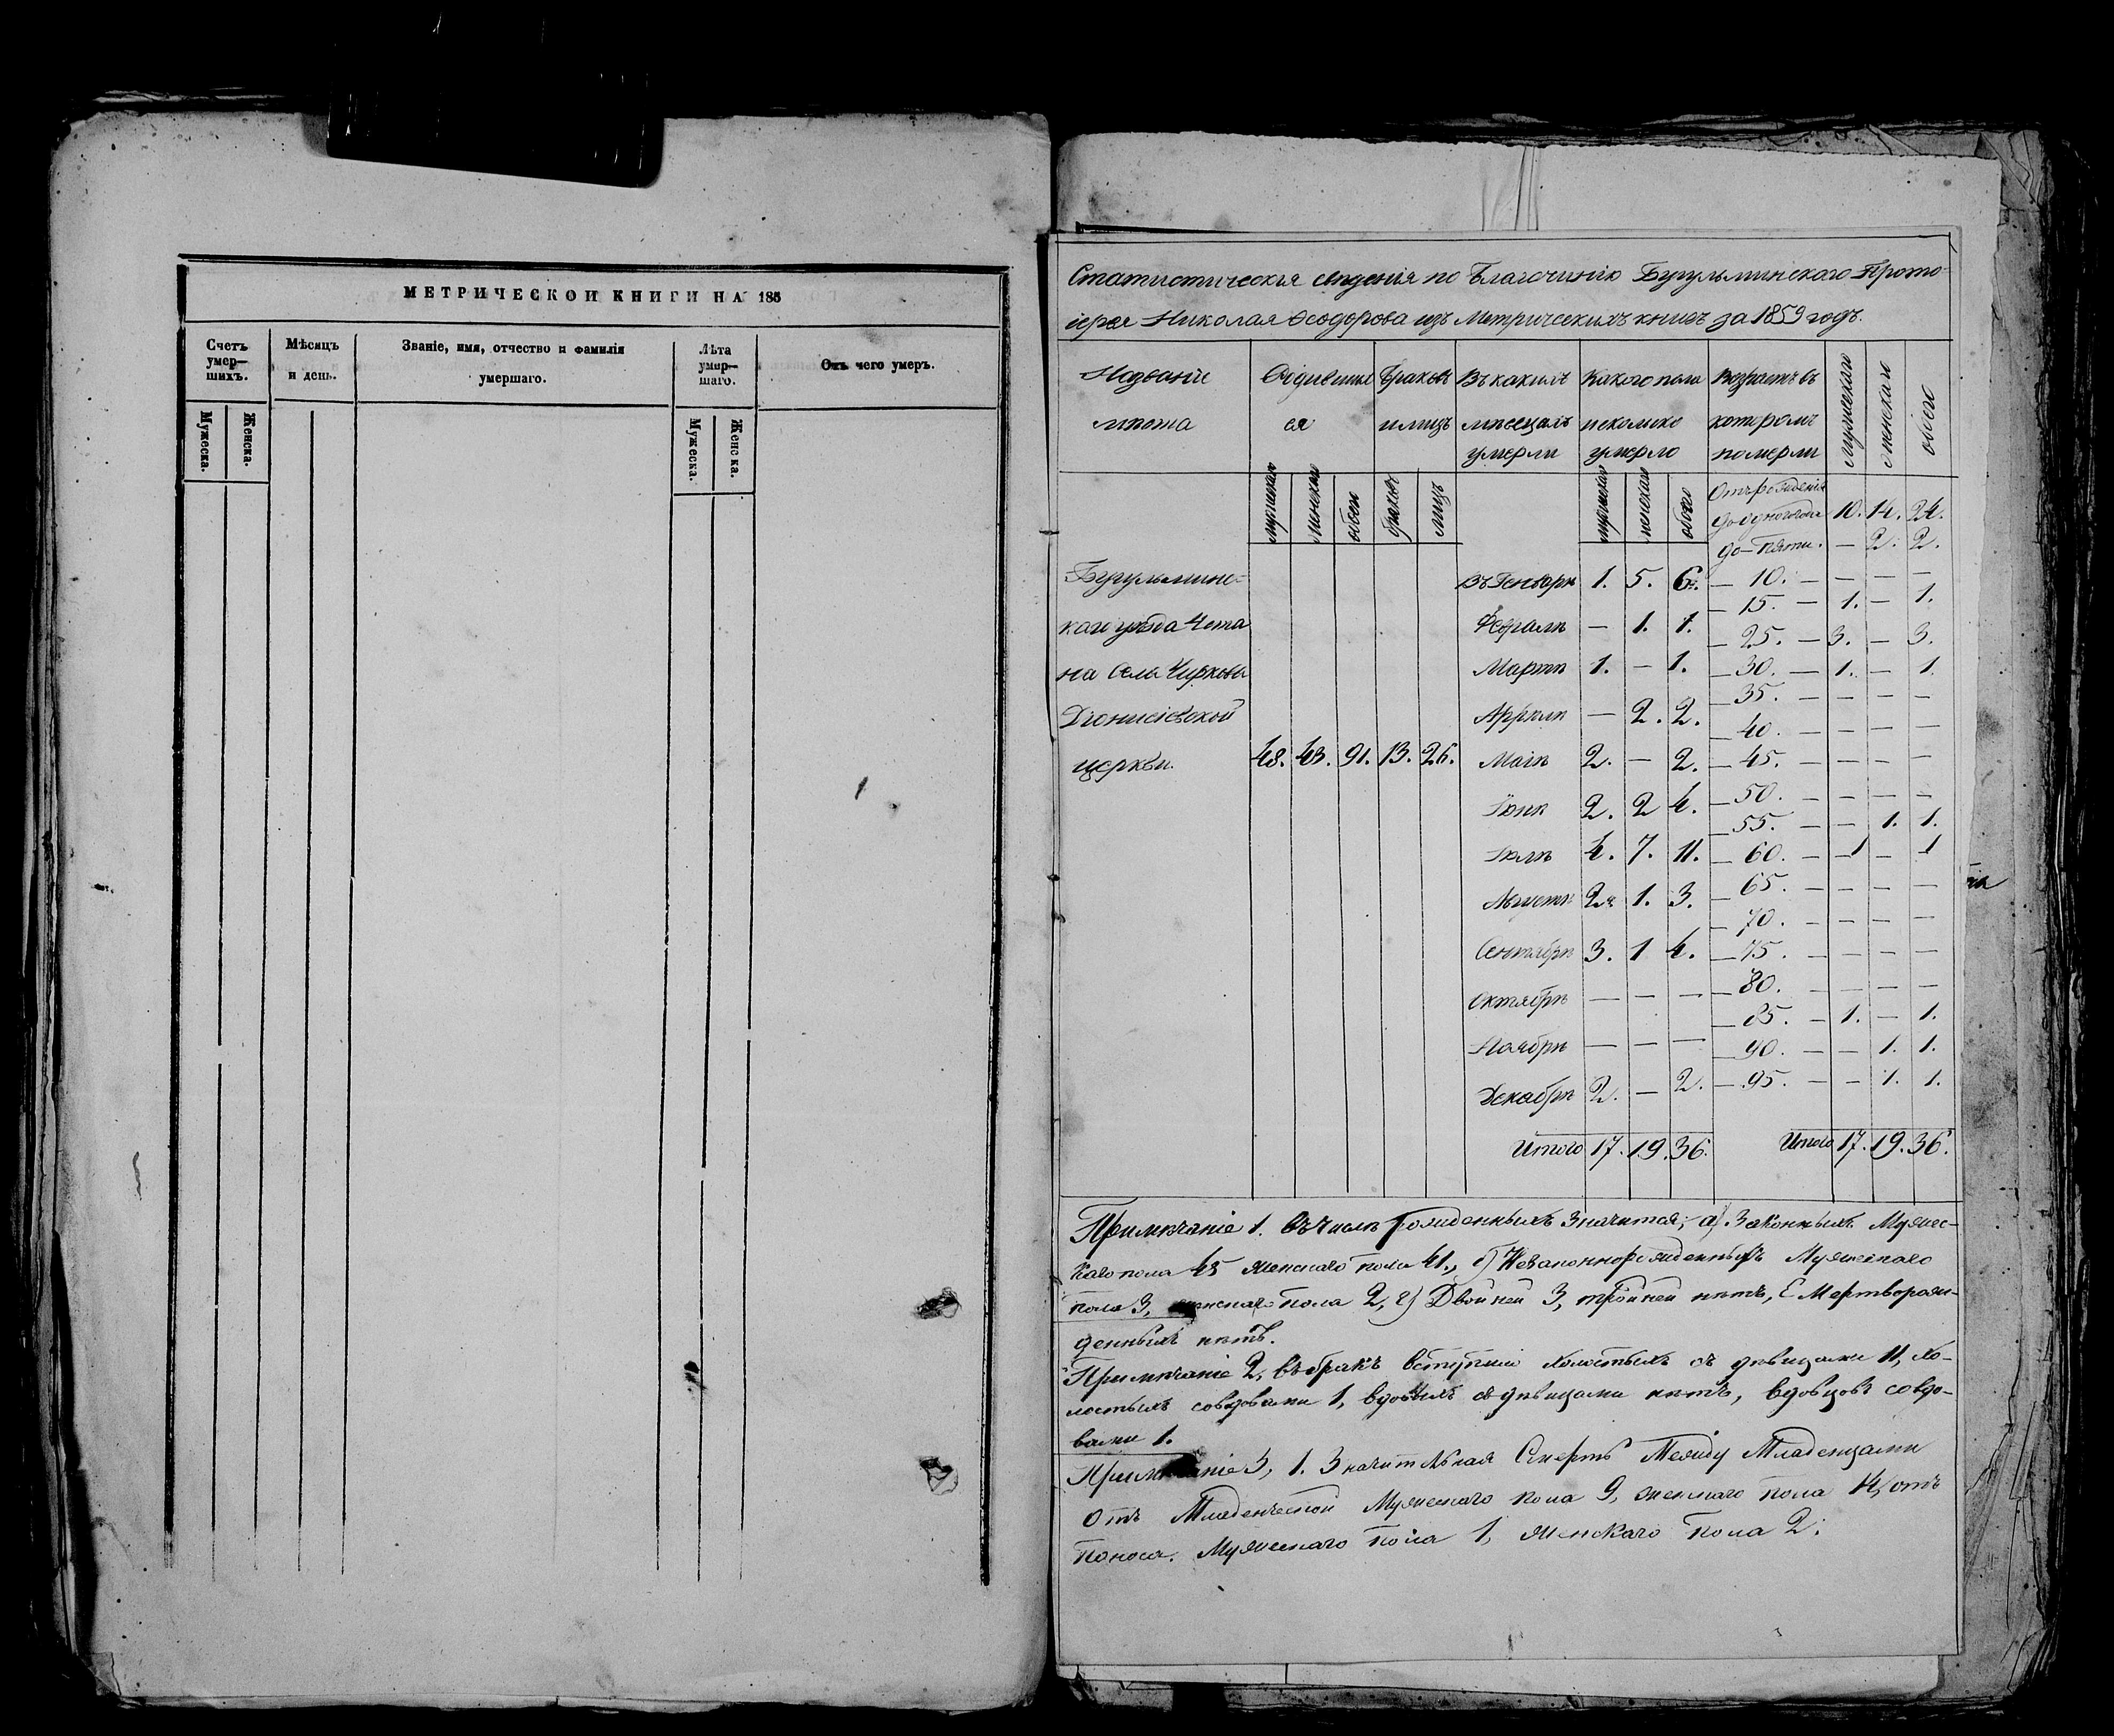 МЕТРИЧЕСКОЙ КНИГИ НА 185
Счетъ умер—шихъ.
Мужеска.
Женска.
Мѣсяцъ и день.
Званіе, имя, отчество и фамилія умершаго.
Лѣта умер—шаго.
Мужеска.
Женска.
Отъ чего умеръ.
Статистическія свѣденія по Благочинію Бугульминскаго Прото-
іерея Николая Ѳеодорова изъ Метрическихъ книгъ за 1859 годъ.
Названіе мѣста
Родившихся
Браковъ и лицъ
Въ какихъ мѣсецахъ умерли
Какого пола и сколько умерло
Возрастъ въ которомъ померли
мужескаго
женскаго
обоего
мужескаго женскаго обоего браковъ лицъ
мужескаго женскаго обоего
Отъ рожденія до одного года 10. 14. 24.
до — пяти. — 2. 2.
Бугульминс-
каго уѣзда Чета
на Села Чиркова
Діонисіевской
церкви. 48. 43. 91. 13. 26.
Въ Генварѣ 1. 5. 6.
Февралѣ — 1. 1.
Мартѣ 1. — 1.
Апрѣлѣ — 2. 2.
Маіѣ 2. — 2.
Іюнѣ 2. 2 4.
Іюлѣ 4. 7. 11.
Августѣ 2. 1. 3.
Сентябрѣ 3. 1 4.
Октябрѣ — — —
Ноябрѣ — — —
Декабрѣ 2. — 2.
Итого 17. 19. 36.
— 10. — — — —
— 15. — 1. — 1.
— 25. — 3. — 3.
— 30. — 1. — 1.
— 35. — — — —
— 40. — — — —
— 45. — — — —
— 50. — — — —
— 55. — — 1. 1.
— 60. — 1 — 1
— 65. — — — —
— 70. — — — —
— 75. — — — —
— 80. — — — —
— 85. — 1. — 1.
— 90. — — 1. 1.
— 95. — — 1. 1.
Итого 17. 19. 36.
Примѣчаніе 1. Въ числѣ рожденныхъ значится; а) Законныхъ Мужес-
каго пола 45 женскаго пола 41., б) Незаконнорожденныхъ Мужескаго
пола 3, женскаго пола 2, г) Двойней 3, тройней нѣтъ, Е Мертворож-
денныхъ нѣтъ.
Примѣчаніе 2, въ бракъ вступили холостыхъ съ дѣвицами 11, хо-
лостыхъ совдовами 1, вдовыхъ съ дѣвицами нѣтъ, вдовцовъ совдо-
вами 1.
Примѣчаніе 3, 1. Значительная Смерть Между Младенцами
Отъ Младенческой Мужескаго пола 9, женскаго пола 14, отъ
поноса. Мужескаго пола 1, женскаго пола 2.